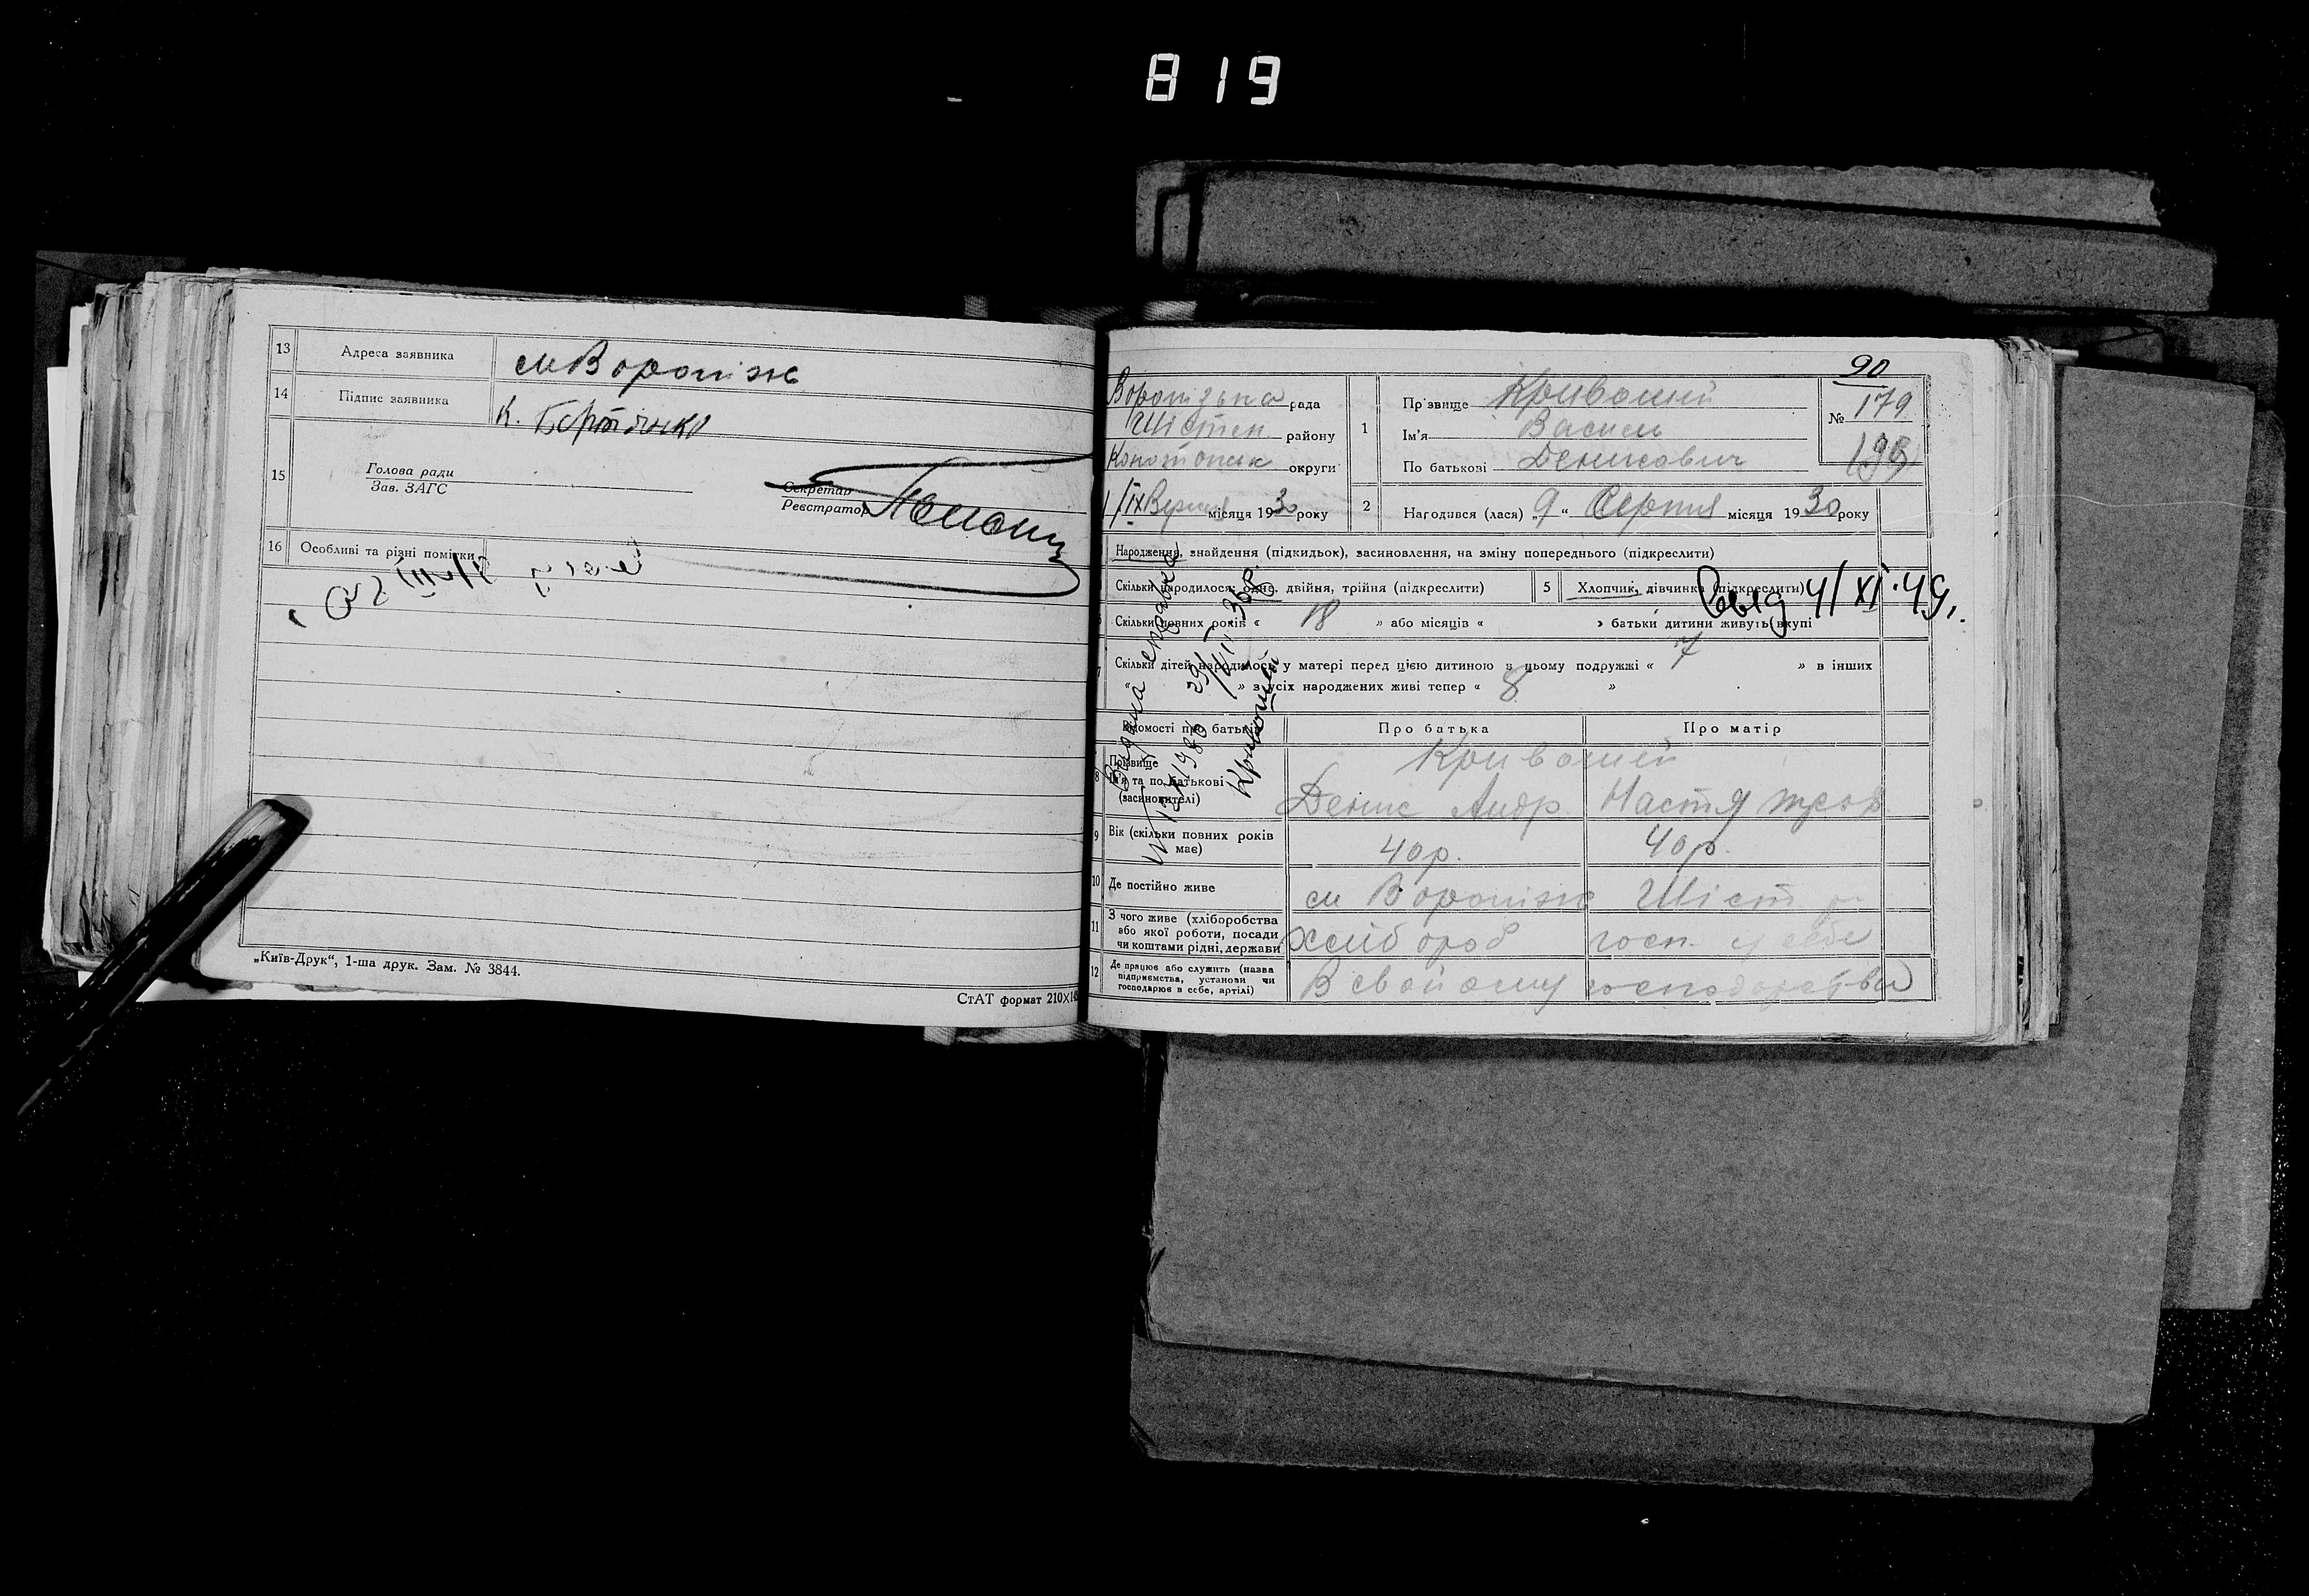 819
13 Адреса заявника см Вороніж
14 Підпис заявника К.
15 Голова ради
Зав. ЗАГС
Секретар
Реєстратор
16 Особливі та різні помітки
„Київ-Друк“, 1-ша друк. Зам. № 3844.
СтАТ формат 210×
90
Воронізька рада
Шістен району
Конотопськ округи
1/IX Вересня місяця 1930 року
1 Прізвище Кривошей
Ім'я Василь
По батькові Денисович
№ 179
2 Народився (лася) „9“ Серпня місяця 1930 року
Народження, знайдення (підкидьок), засиновлення, на зміну попереднього (підкреслити)
Скільки народилося: одне, двійня, трійня (підкреслити)
5 Хлопчик, дівчинка (підкреслити)
Выд 4/XI.49.
Скільки повних років « 18 » або місяців « » батьки дитини живуть вкупі
7 Скільки дітей народилося у матері перед цією дитиною в цьому подружжі « 7 » в інших
« » з усіх народжених живі тепер « 8 »
Відомості про батьків
Про батька
Про матір
8 Прізвище
Ім'я та по батькові
(засиновителі)
Кривошей
Денис Андр
Настя
9 Вік (скільки повних років має)
40 р.
40 р.
10 Де постійно живе
см Вороніж Шіст
11 З чого живе (хліборобства або якої роботи, посади чи коштами рідні, держави
хлібороб
госп. у себе
12 Де працює або служить (назва підприємства, установи чи господарює в себе, артілі)
В свойому господарстві
Видана справка
Кривошей